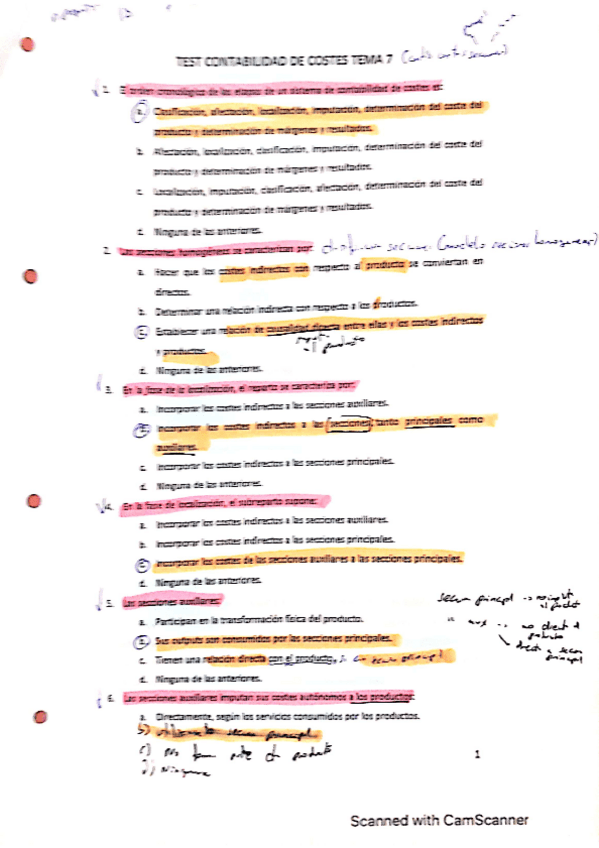 TEST CONTABILIDAD DE COSTES TEMA 7
1. El orden cronológico de las etapas de un sistema de contabilidad de costes es:
a. Clasificación, afectación, localización, imputación, determinación del coste del
producto y determinación de márgenes y resultados.
b. Afectación, localización, clasificación, imputación, determinación del coste del
producto y determinación de márgenes y resultados.
c. Localización, imputación, clasificación, afectación, determinación del coste del
producto y determinación de márgenes y resultados.
d. Ninguna de las anteriores.
2. Las secciones homogéneas se caracterizan por:
a. Hacer que los costes indirectos con respecto al producto se conviertan en
directos.
b. Determinar una relación indirecta con respecto a los productos.
c. Establecer una relación de causalidad directa entre ellas y los costes indirectos
y productos.
d. Ninguna de las anteriores.
3. En la fase de la localización, el reparto se caracteriza por:
a. Incorporar los costes indirectos a las secciones auxiliares.
b. Incorporar los costes indirectos a las secciones, tanto principales como
auxiliares.
c. Incorporar los costes indirectos a las secciones principales.
d. Ninguna de las anteriores.
4. En la fase de localización, el subreparto supone:
a. Incorporar los costes indirectos a las secciones auxiliares.
b. Incorporar los costes indirectos a las secciones principales.
c. Incorporar los costes de las secciones auxiliares a las secciones principales.
d. Ninguna de las anteriores.
5. Las secciones auxiliares:
a. Participan en la transformación física del producto.
b. Sus outputs son consumidos por las secciones principales.
c. Tienen una relación directa con el producto
d. Ninguna de las anteriores.
6. Las secciones auxiliares imputan sus costes autónomos a los productos:
a. Directamente, según los servicios consumidos por los productos.
d) Ninguna
1
Scanned with CamScanner